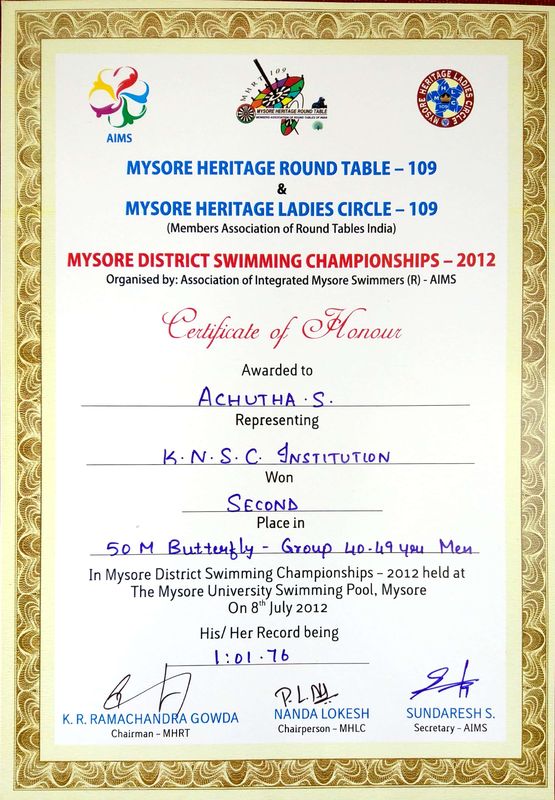 AIMS
MHRT 109
MYSORE HERITAGE ROUND TABLE
MEMBERS ASSOCIATION OF ROUND TABLES OF INDIA
MYSORE HERITAGE LADIES CIRCLE
MYSORE HERITAGE ROUND TABLE – 109
&
MYSORE HERITAGE LADIES CIRCLE – 109
(Members Association of Round Tables India)
MYSORE DISTRICT SWIMMING CHAMPIONSHIPS – 2012
Organised by: Association of Integrated Mysore Swimmers (R) - AIMS
Certificate of Honour
Awarded to
ACHUTHA.S.
Representing
K.N.S.C. INSTITUTION
Won
SECOND
Place in
50 M Butterfly - Group 40-49 yrs Men
In Mysore District Swimming Championships – 2012 held at
The Mysore University Swimming Pool, Mysore
On 8th July 2012
His/ Her Record being
1:01.76
K. R. RAMACHANDRA GOWDA
Chairman – MHRT
NANDA LOKESH
Chairperson – MHLC
SUNDARESH S.
Secretary – AIMS